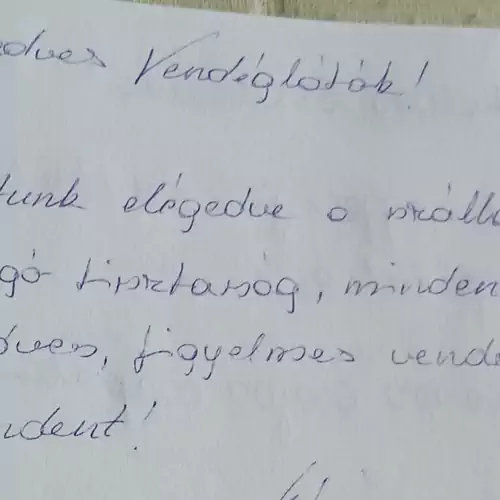 edves Vendéglátók!
tunk elégedve a száll
gó tisztaság, minden
öves, figyelmes vendé
ndent!